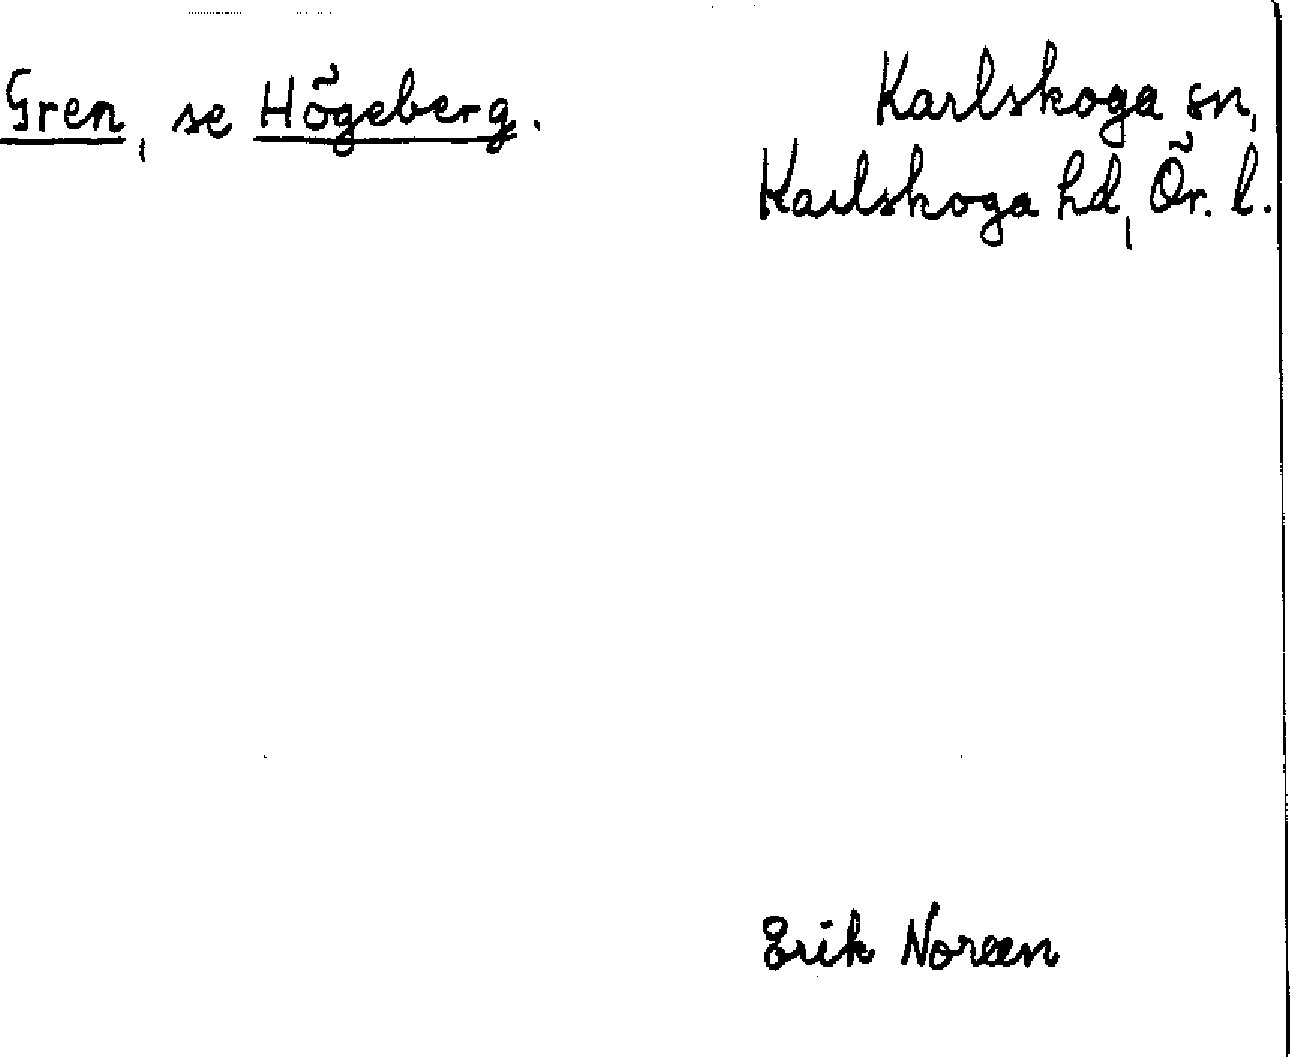 Gren, se Högeberg.
Karlskoga sn,
Karlskoga hd, Ör. l.
Erik Noreen